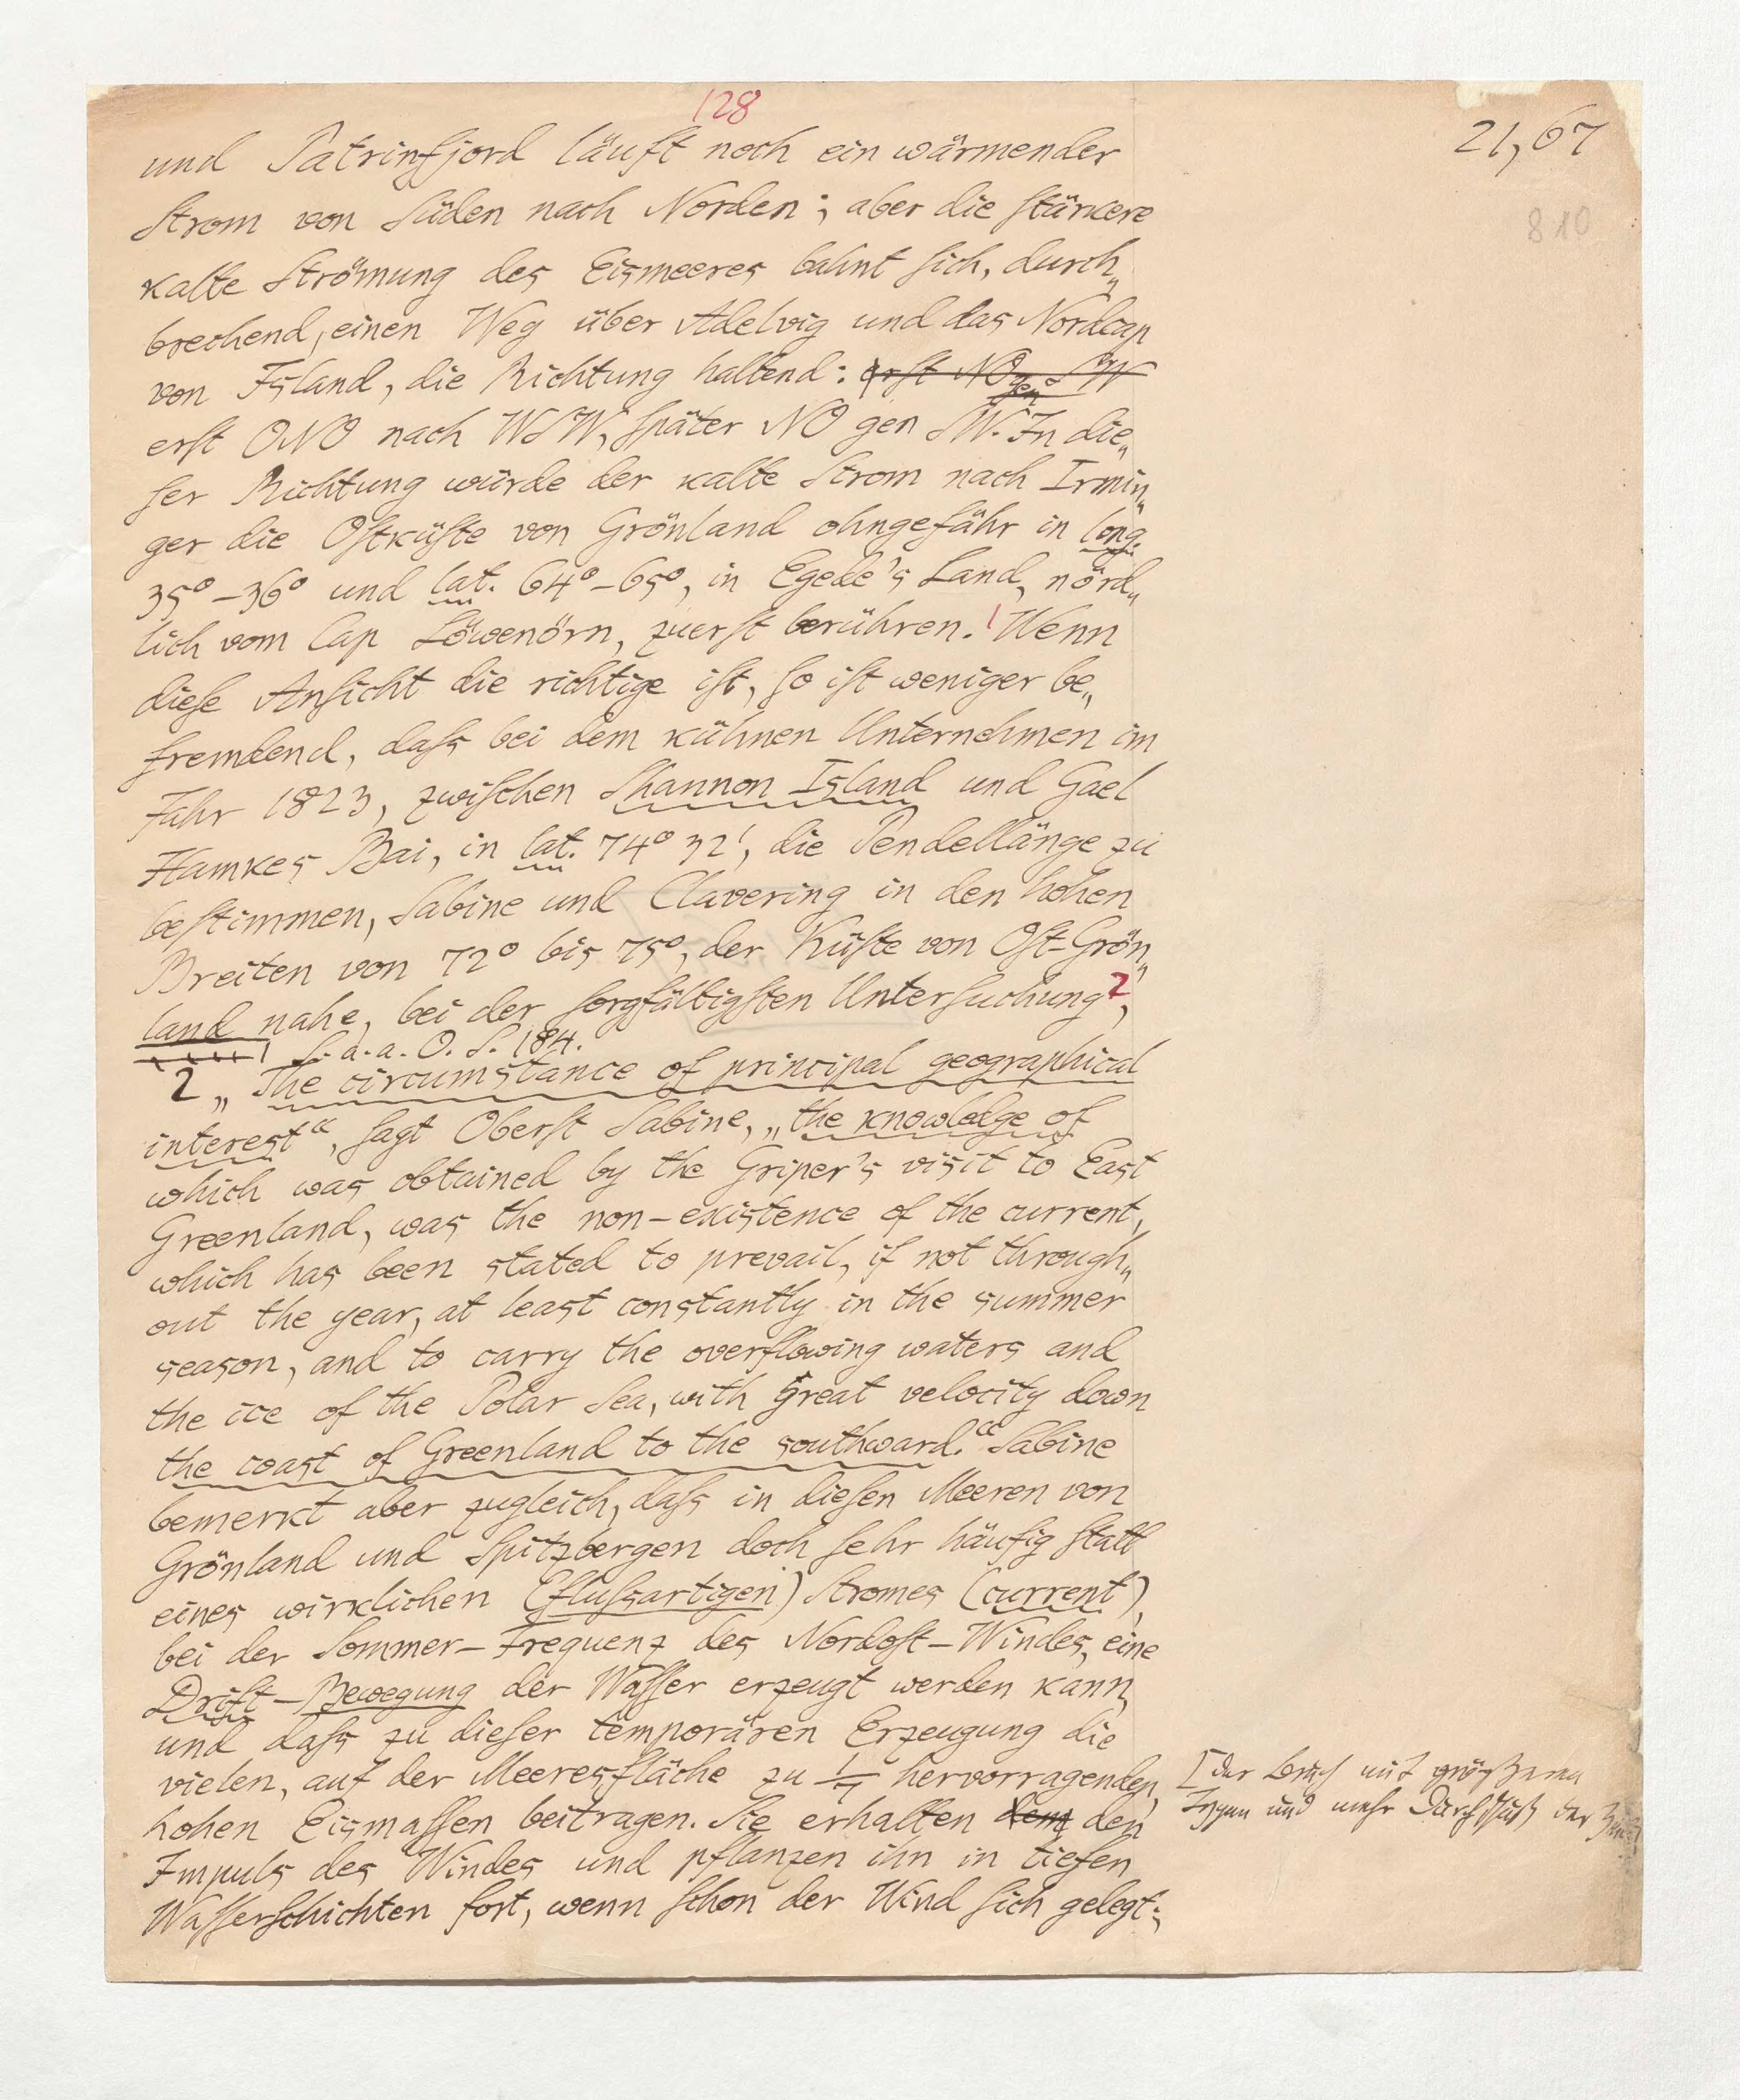 128
21,67
810
und Patrinfjord läuft noch ein wärmender
Strom von Süden nach Norden; aber die stärkere
kalte Strömung des Eismeeres bahnt sich, durch„
brechend, einen Weg über Adelvig und das Nordcap
von Island, die Richtung haltend: erst NO gen SW
erst ONO nach WSW, später NO gen SW. In die„
ser Richtung würde der kalte Strom nach Irmin„
ger die Ostküste von Grönland ohngefähr in long.
35° – 36° und lat. 64° – 65°, in Egede's Land, nörd„
lich vom Cap Löwenörn, zuerst berühren.¹ Wenn
diese Ansicht die richtige ist, so ist weniger be„
fremdend, dass bei dem kühnen Unternehmen im
Jahr 1823, zwischen Shannon Island und Gael
Hamkes Bai, in lat. 74° 32', die Pendellänge zu
bestimmen, Sabine und Clavering in den hohen
Breiten von 72° bis 75°, der Küste von Ost-Grön„
land nahe, bei der sorgfältigsten Untersuchung²,
1 S. a. a. O. S. 184.
2 „The circumstance of principal geographical
interest“, sagt Oberst Sabine, „the knowledge of
which was obtained by the Griper's visit to East
Greenland, was the non-existence of the current,
which has been stated to prevail, if not through„
out the year, at least constantly in the summer
season, and to carry the overflowing waters and
the ice of the Polar Sea, with great velocity down
the coast of Greenland to the southward.“ Sabine
bemerkt aber zugleich, dass in diesen Meeren von
Grönland und Spitzbergen doch sehr häufig statt
eines wirklichen (flussartigen) Stromes (current),
bei der Sommer-Frequenz des Nordost-Windes, eine
Drift-Bewegung der Wasser erzeugt werden kann,
und dass zu dieser temporären Erzeugung die
vielen, auf der Meeresfläche zu 1/7 hervorragenden,
[der Bruch mit größeren
hohen Eismassen beitragen. Sie erhalten dem den
und mehr Durchschuß der
Impuls des Windes und pflanzen ihn in tiefen
Wasserschichten fort, wenn schon der Wind sich gelegt;